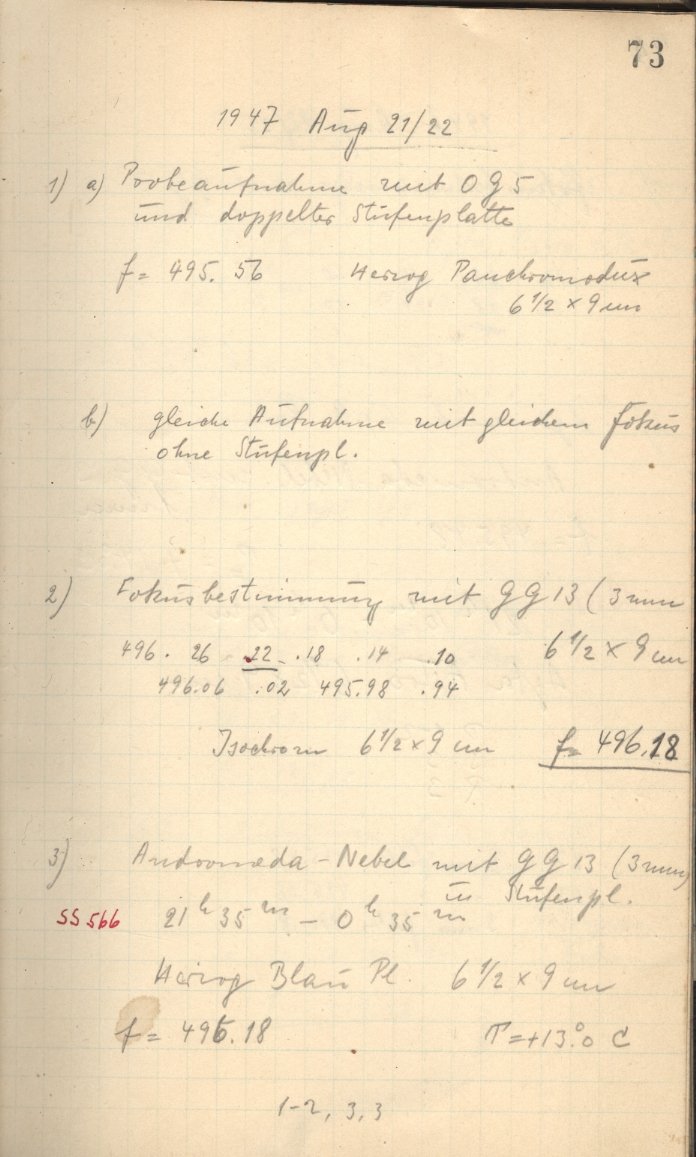 73
1947 Aug 21/22
1) a) Probeaufnahme mit O G 5
und doppelter Stufenplatte
f = 495.56 Herzog Panchromodux
6 1/2 × 9 cm
b) gleiche Aufnahme mit gleichem Fokus
ohne Stufenpl.
2) Fokusbestimmung mit GG 13 (3 mm
496.26 .22 .18 .14 .10 6 1/2 × 9 cm
496.06 .02 495.98 .94
Isochrom 6 1/2 × 9 cm f = 496.18
3) Andromeda-Nebel mit GG 13 (3 mm)
u Stufenpl.
SS 566 21 h 35 m – 0 h 35 m
Herzog Blau Pl. 6 1/2 × 9 cm
f = 496.18 T = +13°.0 C
1-2, 3, 3